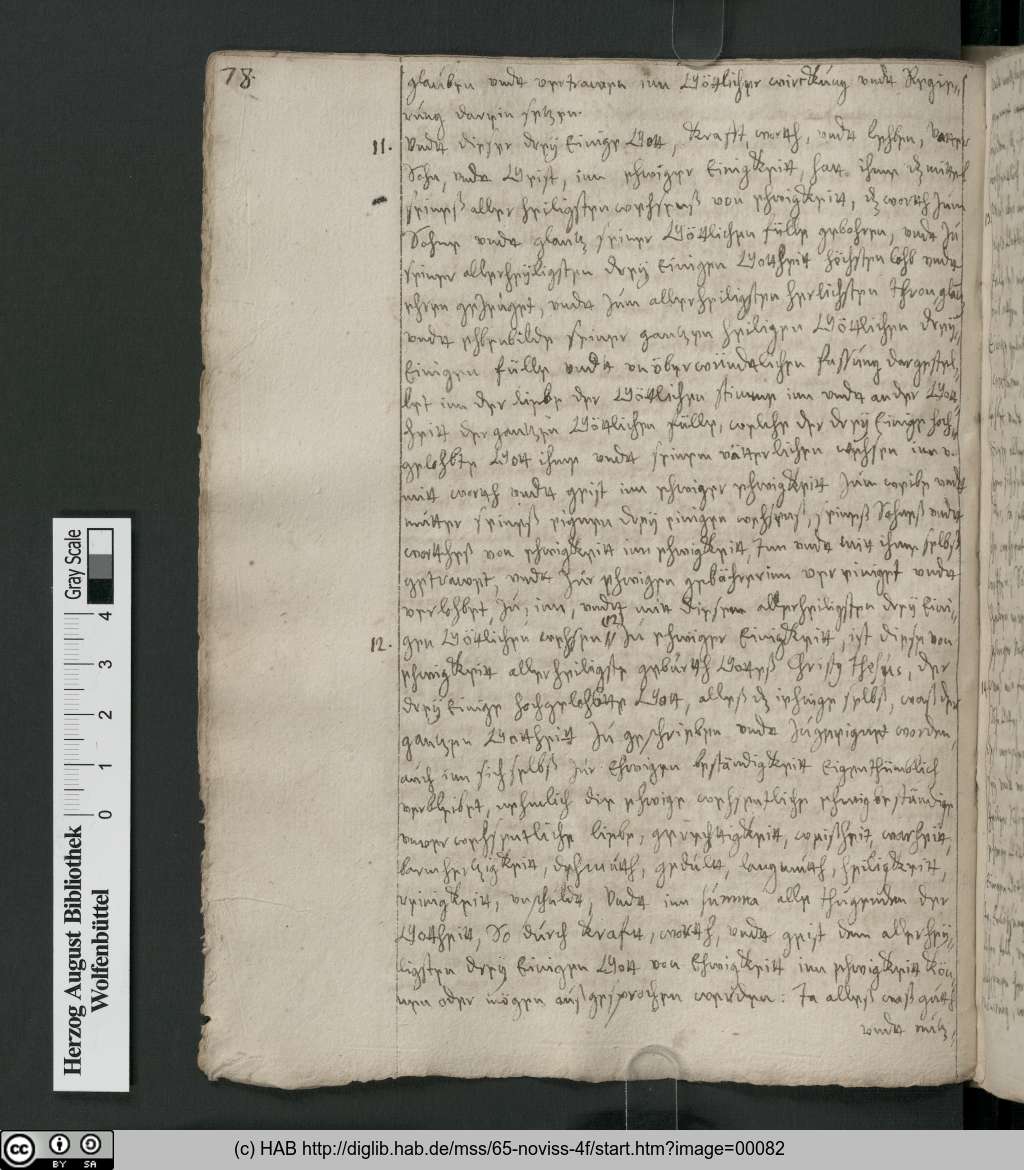 78.
glauben vndt vertrawen inn Göttlicher wirckung vndt Regie„
rung darein setzen.
11. Vndt dieser dreÿ Einige Gott, krafft, worth, vndt lehben, Vatter
Sohn, vndt Geist, inn ehwiger Einigkeitt, hatt ihme dz mittels
seineß allerheiligsten wehsenß von ehwigkeitt, dz worth zum
Sohne vndt glantz seiner Göttlichen fülle gebohren, vndt zu
seiner allerheÿligsten dreÿ Einigen Gottheitt höchsten lohb vndt
ehren gezeuget, vndt zum allerheiligsten herlichsten thron glantz
vndt ehbenbilde seiner gantzen heiligen Göttlichen dreÿ„
Einigen fülle vndt vnöberwündtlichen fassung dargestel„
let inn der liebe der Göttlichen stimme inn vndt an der Gott
heitt der gantzen Göttlichen fülle, welche der dreÿ Einige hoch„
gelohbte Gott ihme vndt seinem vätterlichen wehsen inn v.
mitt worth vndt geist inn ehwiger ehwigkeitt zum weibe vndt
mutter seineß eigenen dreÿ einigen wehsenß, seineß Sohneß vndt
wortheß von ehwigkeitt inn ehwigkeitt, Inn vndt mitt ihme selbst
getrawet, vndt zur ehwigen gebährerinn vereiniget vndt
verlohbet, zu, inn, vndt mitt diesem allerheiligsten dreÿ Eini„
12. gen Göttlichen wehsen (12) // Zu ehwiger Einigkeitt, ist diese von
ehwigkeitt allerheiligste geburth Gotteß Christÿ Jhesus, der
dreÿ Einige hochgelohbtte Gott, alleß dz iehnige selbst, waß der
gantzen Gottheitt zu geschrieben vndt zugeeignet worden,
auch inn sich selbst zur Ehwigen beständigkeitt Eigenthümblich
verbleibet, nehmlich die ehwige wehsentliche ehwigbeständige
vnverwehsentliche liebe, gerechttigkeitt, weißheit, warheitt,
barmhertzigkeitt, dehmuth, gedult, langmuth, heiligkeitt,
reinigkeitt, vnschuldt, Vndt inn summa alle thugenden der
Gottheitt, So durch krafft, worth, vndt geist dem allerheÿ„
ligsten dreÿ Einigen Gott von Ehwigkeitt inn ehwigkeitt kön„
nen oder mögen außgesprochen werden: Ja alleß waß gutt
vndt nütz„
Herzog August Bibliothek
Wolfenbüttel
0 1 2 3 4
Gray Scale
cc BY SA
(c) HAB http://diglib.hab.de/mss/65-noviss-4f/start.htm?image=00082